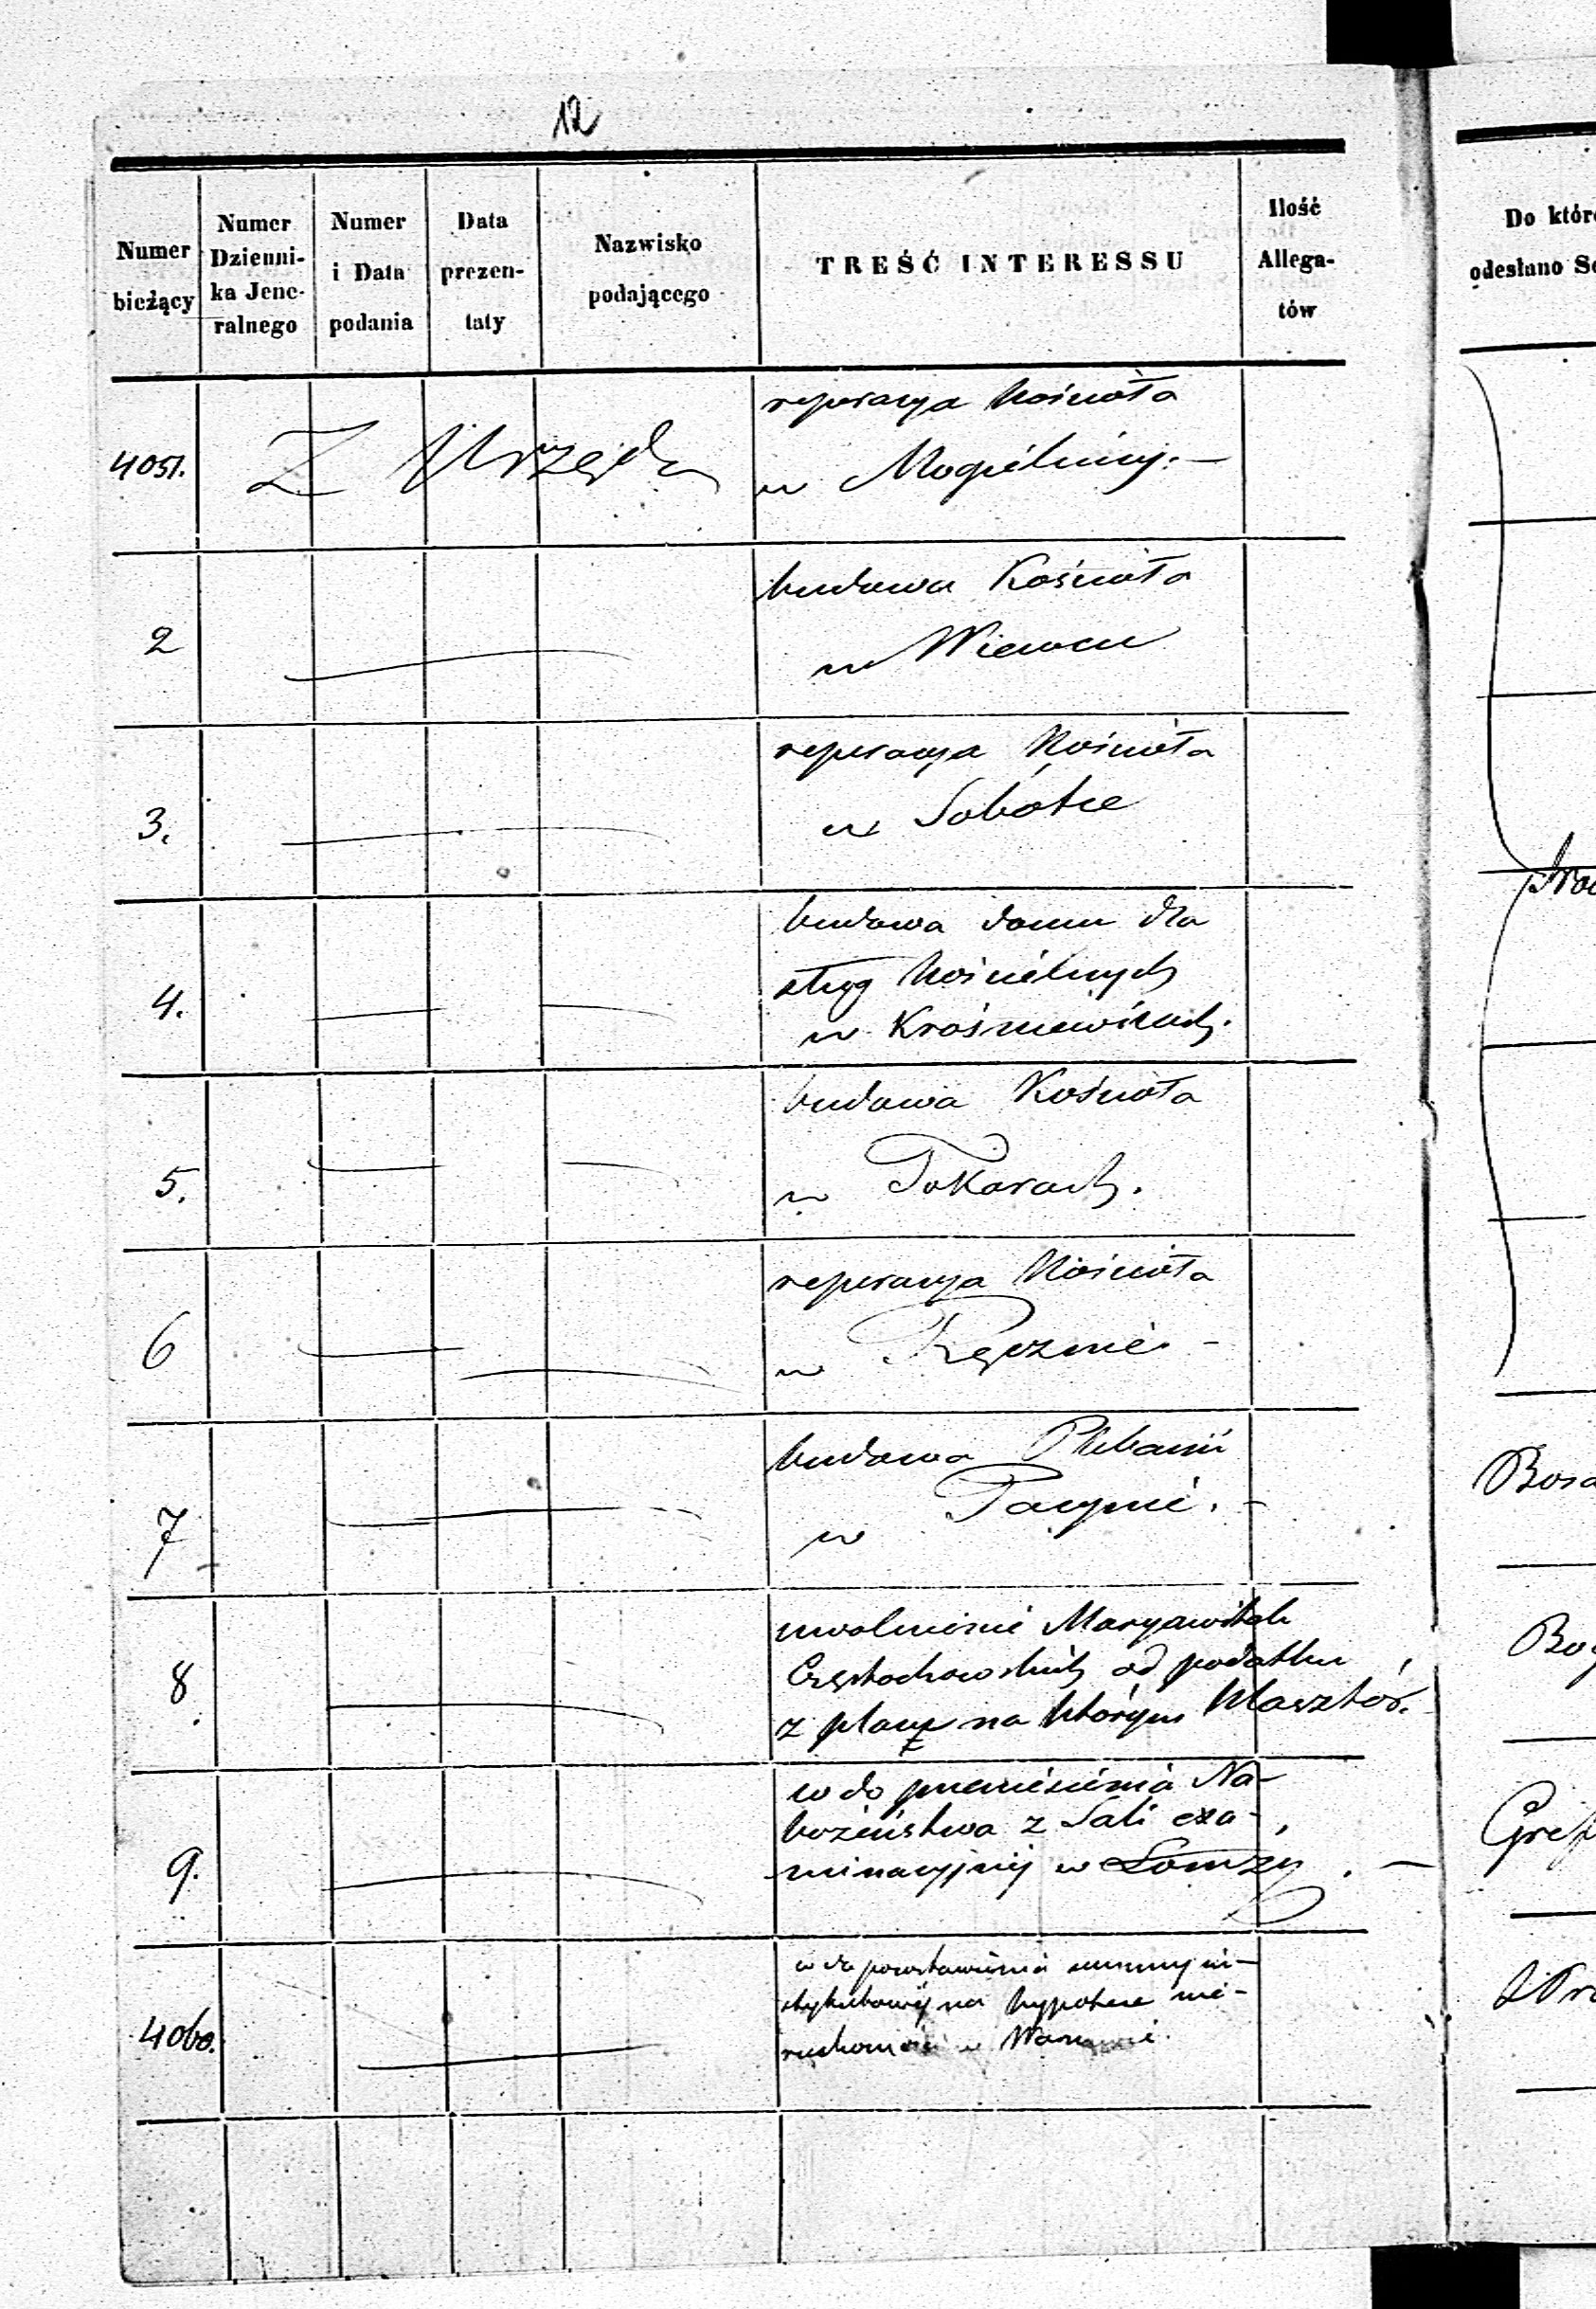 12
Numer bieżący
Numer Dzienni-ka Jene-ralnego
Numer i Data podania
Data prezen-taty
Nazwisko podającego
TREŚĆ INTERESSU
Ilość Allega-tów
Do któr
odesłano Se
4051.
Z Urzędu
reperacya Kościoła
w Mogielnicy. —
2
budowa Kościoła
w Wiewcu
3.
reperacya Kościoła
w Sobótce
4.
budowa domu dla
sług Kościelnych
w Krośniewicach.
5.
budowa Kościoła
w Tokarach.
6
reperacya Kościoła
w Ręcznie. -
7
budowa Plebanii
w Pacynie. -
8
uwolnienie Maryawitek
Częstochowskich od podatku
z placu na którym Klasztór.
9.
w do przeniesienia Na-
bożeństwa z Sali exa-
minacyjnej w Łomży. —
4060.
w do pozostawienia summy
na hypotece nie-
ruchomości w
Bog